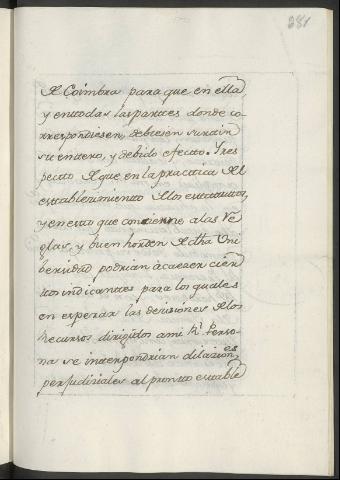 281
de Coimbra para que en ella
y en todas las partes donde co-
rrespondiesen, debiesen surtir
su entero, y debido efecto. Y res
pecto de que en la practica del
establecimiento de los estatutos,
y en esto que concierne a las Re
glas, y buen horden de dha Uni
bersidad podrian acaezer cier
tos indicantes para los quales
en esperar las decisiones de los
Recursos dirigidos a mi Rl. Perso-
na se interpondrian dilaziones
perjudiciales al pronto estable